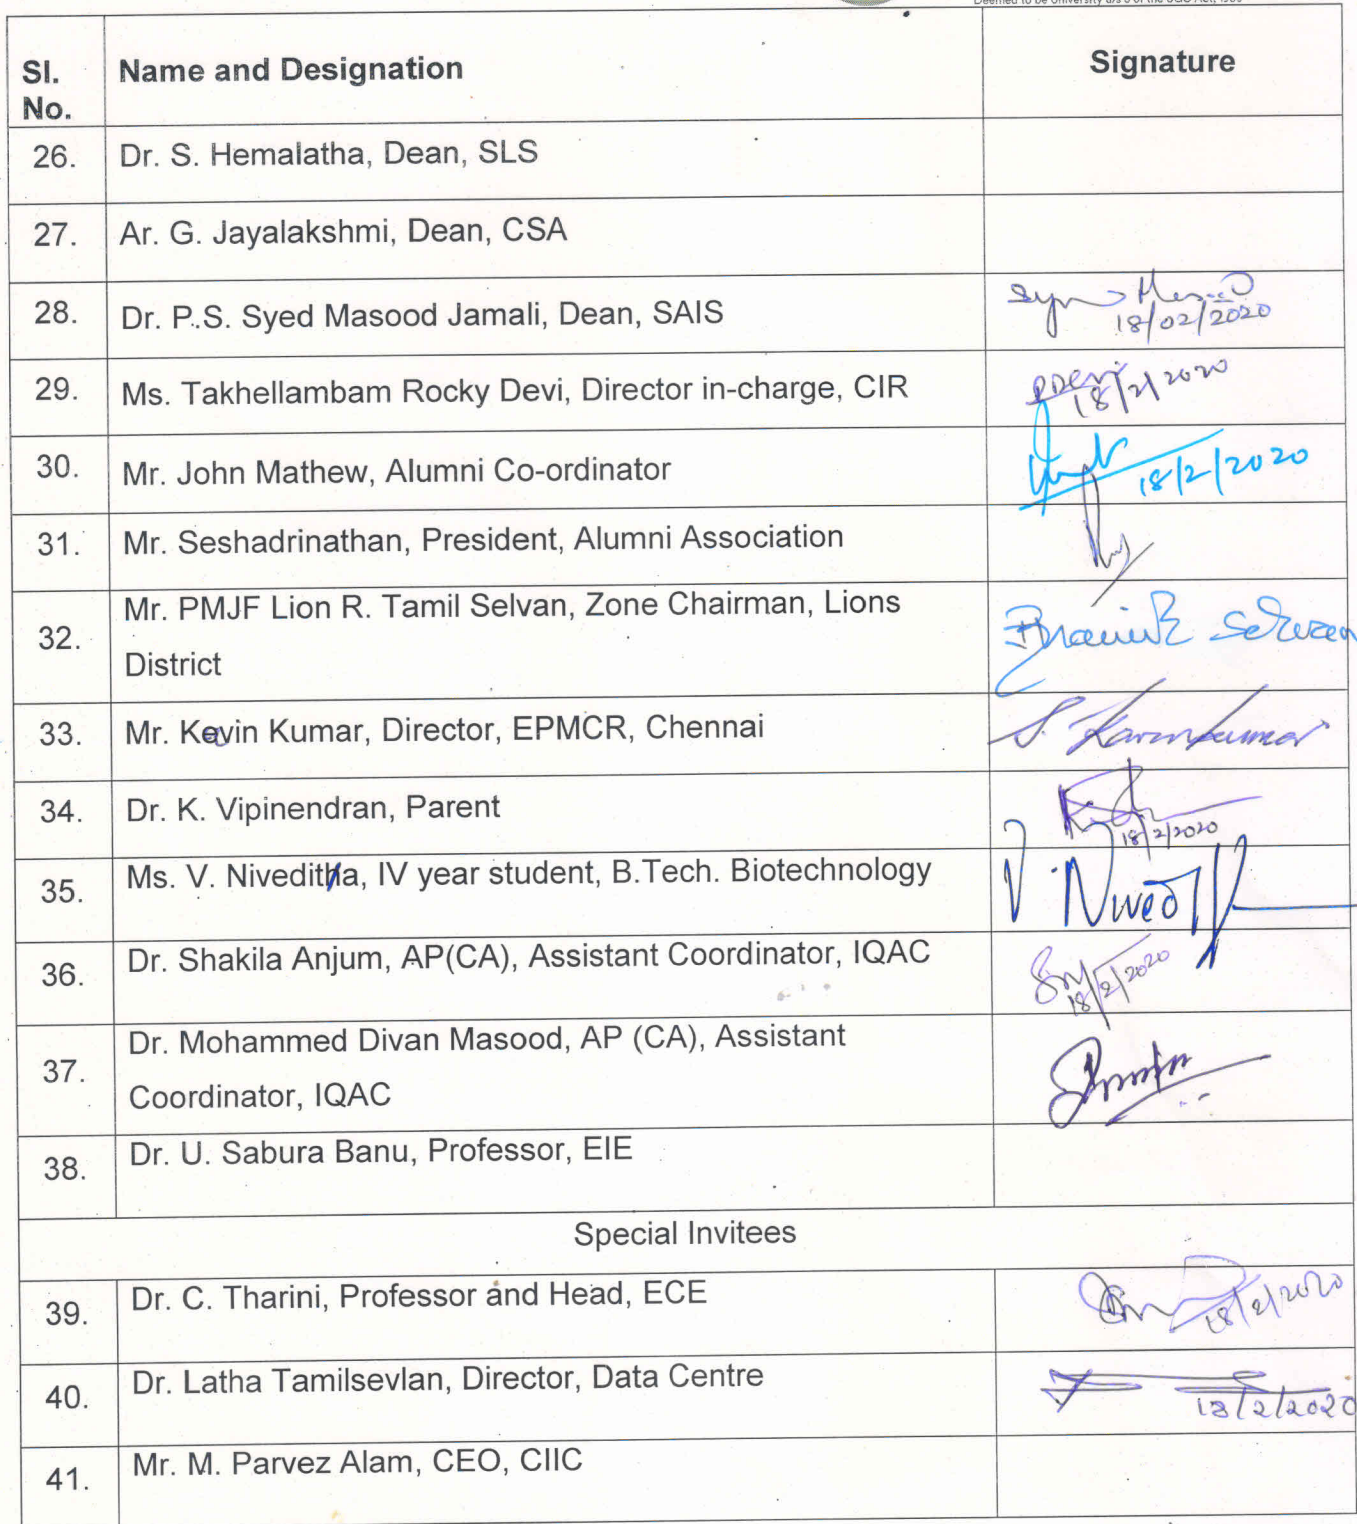 Deemed to be University u/s 3 of the UGC Act, 1956
Sl. No. Name and Designation Signature
26. Dr. S. Hemalatha, Dean, SLS
27. Ar. G. Jayalakshmi, Dean, CSA
28. Dr. P.S. Syed Masood Jamali, Dean, SAIS
18/02/2020
29. Ms. Takhellambam Rocky Devi, Director in-charge, CIR
18/2/2020
30. Mr. John Mathew, Alumni Co-ordinator 18/2/2020
31. Mr. Seshadrinathan, President, Alumni Association
32. Mr. PMJF Lion R. Tamil Selvan, Zone Chairman, Lions
District
33. Mr. Kevin Kumar, Director, EPMCR, Chennai
34. Dr. K. Vipinendran, Parent
18/2/2020
35. Ms. V. Niveditha, IV year student, B.Tech. Biotechnology
36. Dr. Shakila Anjum, AP(CA), Assistant Coordinator, IQAC
18/2/2020
37. Dr. Mohammed Divan Masood, AP (CA), Assistant
Coordinator, IQAC
38. Dr. U. Sabura Banu, Professor, EIE
Special Invitees
39. Dr. C. Tharini, Professor and Head, ECE 18/2/2020
40. Dr. Latha Tamilsevlan, Director, Data Centre
18/2/2020
41. Mr. M. Parvez Alam, CEO, CIIC